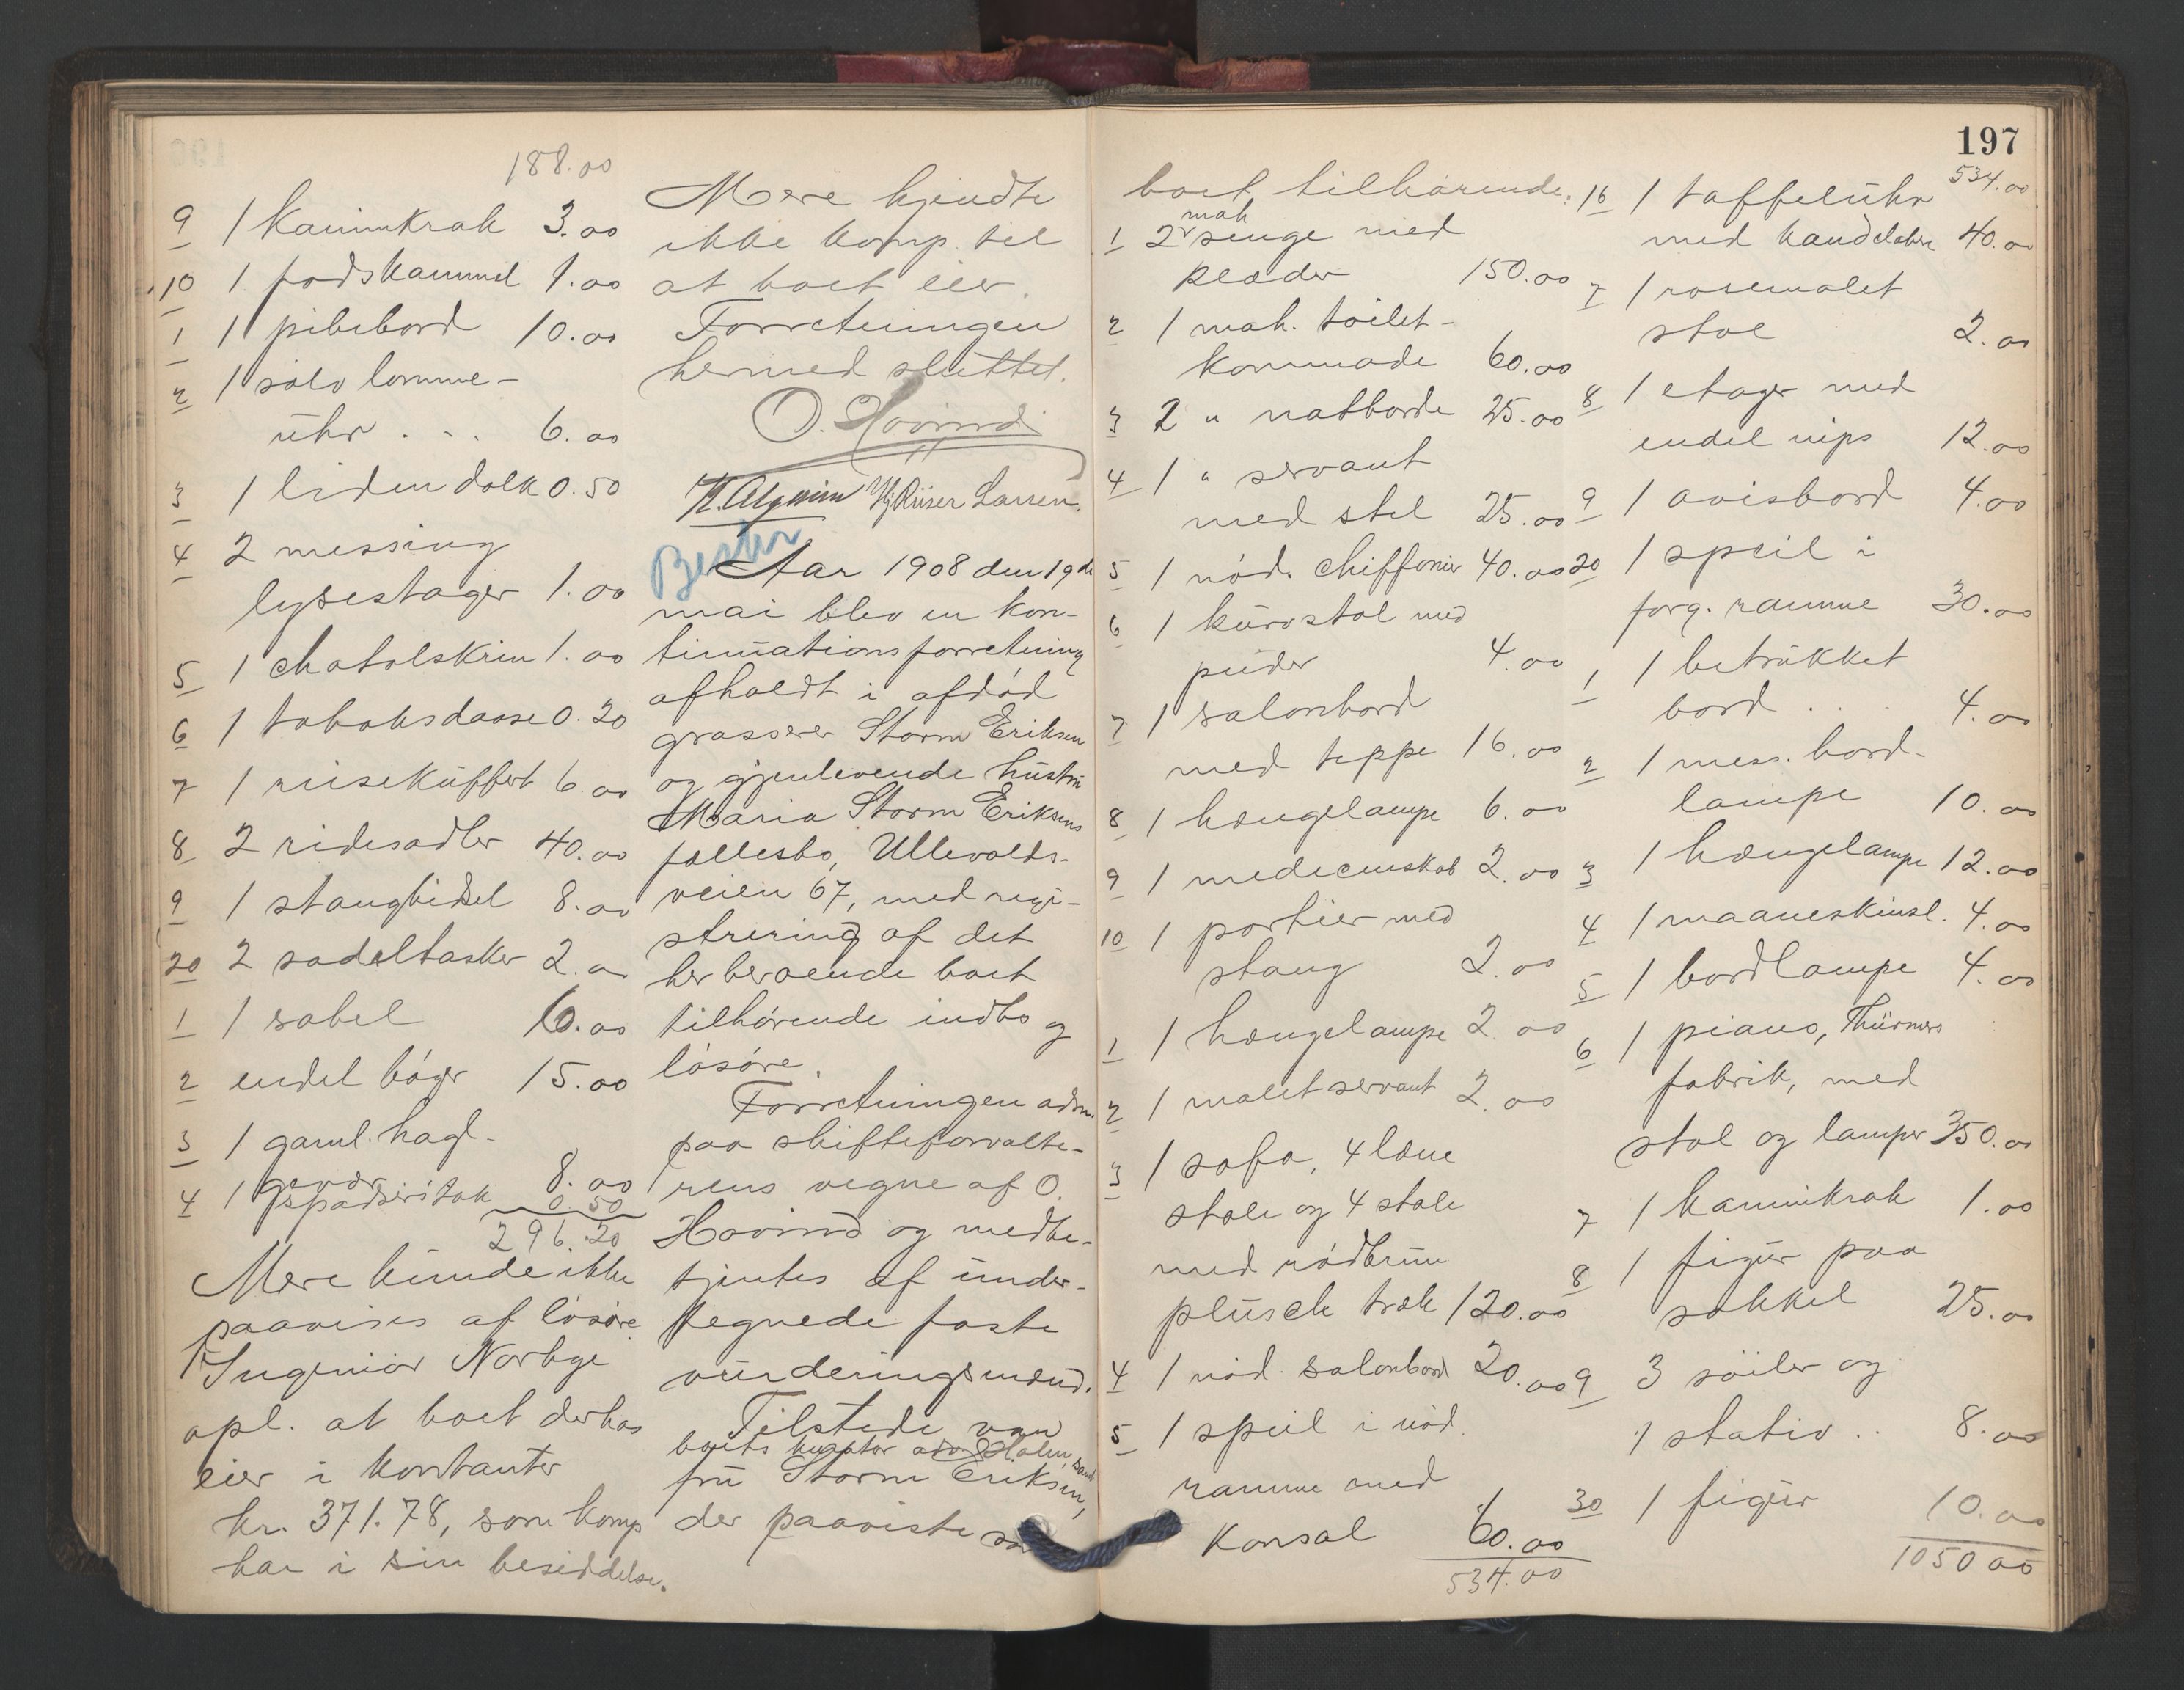 188.00
9 1 kaminkrak 3.00
10 1 fodskammel 1.00
1 1 pibebord 10.00
2 1 sölv lomme-
ühr . . . 6.00
3 1 liden dolk 0.50
4 2 messing
lysestager 1.00
5 1 chatolskrin 1.00
6 1 tobaksdaase 0.20
7 1 reisekuffert 6.00
8 2 ridesadler 40.00
9 1 stangbidsel 8.00
20 2 sadeltasker 2.00
1 1 sabel 6.00
2 endel böger 15.00
3 1 gaml. hagl-
gevær 8.00
4 1 spadserstok 0.50
296.20
Mere kunde ikke
paavises af lösöre.
Ingeniör Norbye
opl. at boet derhos
eier i kontanter
kr. 371.78, som komp
har i sin besiddelse.
Mere kjendte
ikke komp. til
at boet eier.
Forretningen
hermed sluttet.
O. Hovind
Hj. Riiser Larsen.
Aar 1908 den 19de
mai blev en kon-
tinuationsforretning
afholdt i afdöd
grosserer Storm Eriksen
og gjenlevende hustru
Maria Storm Eriksens
fællesbo, Ullevolds-
veien 67, med regi-
strering af det
herberoende boet
tilhörende indbo og
lösöre.
Forretningen adm.
paa skifteforvalte-
rens vegne af O.
Hovind og medbe-
tjentes af under-
tegnede faste
vurderingsmænd.
Tilstede var
boets kurator adv. Holm, samt
fru Storm Eriksen,
der paaviste som
197
boet tilhörende:
1 2 mah senge med
klæder 150.00
2 1 mah. toilet-
kommode 60.00
3 2 " natborde 25.00
4 1 " servant
med stel 25.00
5 1 nöd. chiffonier 40.00
6 1 kurvstol med
puder 4.00
7 1 salonbord
med teppe 16.00
8 1 hængelampe 6.00
9 1 medecinskab 2.00
10 1 portier med
stang 2.00
1 1 hængelampe 2.00
2 1 malet servant 2.00
3 1 sofa, 4 læne
stole og 4 stole
med rödbrun
plüsch træk 120.00
4 1 nöd. salonbord 20.00
5 1 speil i nöd.
ramme med
Konsol 60.00
534.00
534.00
16 1 taffelühr
med kandelabre 40.00
7 1 rosemalet
stol 2.00
8 1 etager med
endel nips 12.00
9 1 avisbord 4.00
20 1 speil i
forg. ramme 30.00
1 1 betrukket
bord . . 4.00
2 1 mess. bord-
lampe 10.00
3 1 hængelampe 12.00
4 1 maaneskinsl. 4.00
5 1 bordlampe 4.00
6 1 piano, Thürmers
fabrik, med
stol og lamper 350.00
7 1 kaminkrak 1.00
8 1 figur paa
sokkel 25.00
9 3 söiler og
1 stativ . . 8.00
30 1 figur 10.00
1050 00